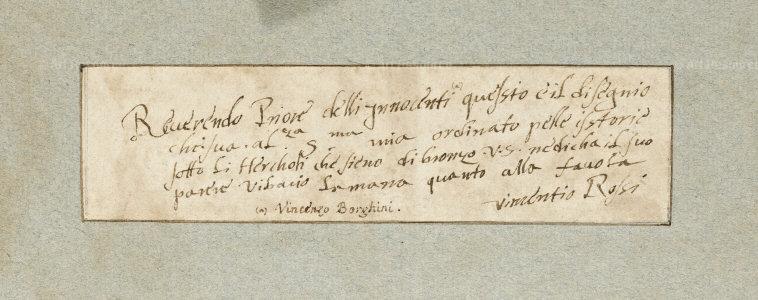 Reverendo Priore delli Innocenti (a) questo e il disegnio
che sua . al.za S.ma mia ordinato pelle istorie
sotto li Hercholi che sieno di bronzo . V.S. ne dicha il suo
parere vi bacio la mana quanto alla favola
vincentio Rossi
(a) Vincenzo Borghini .